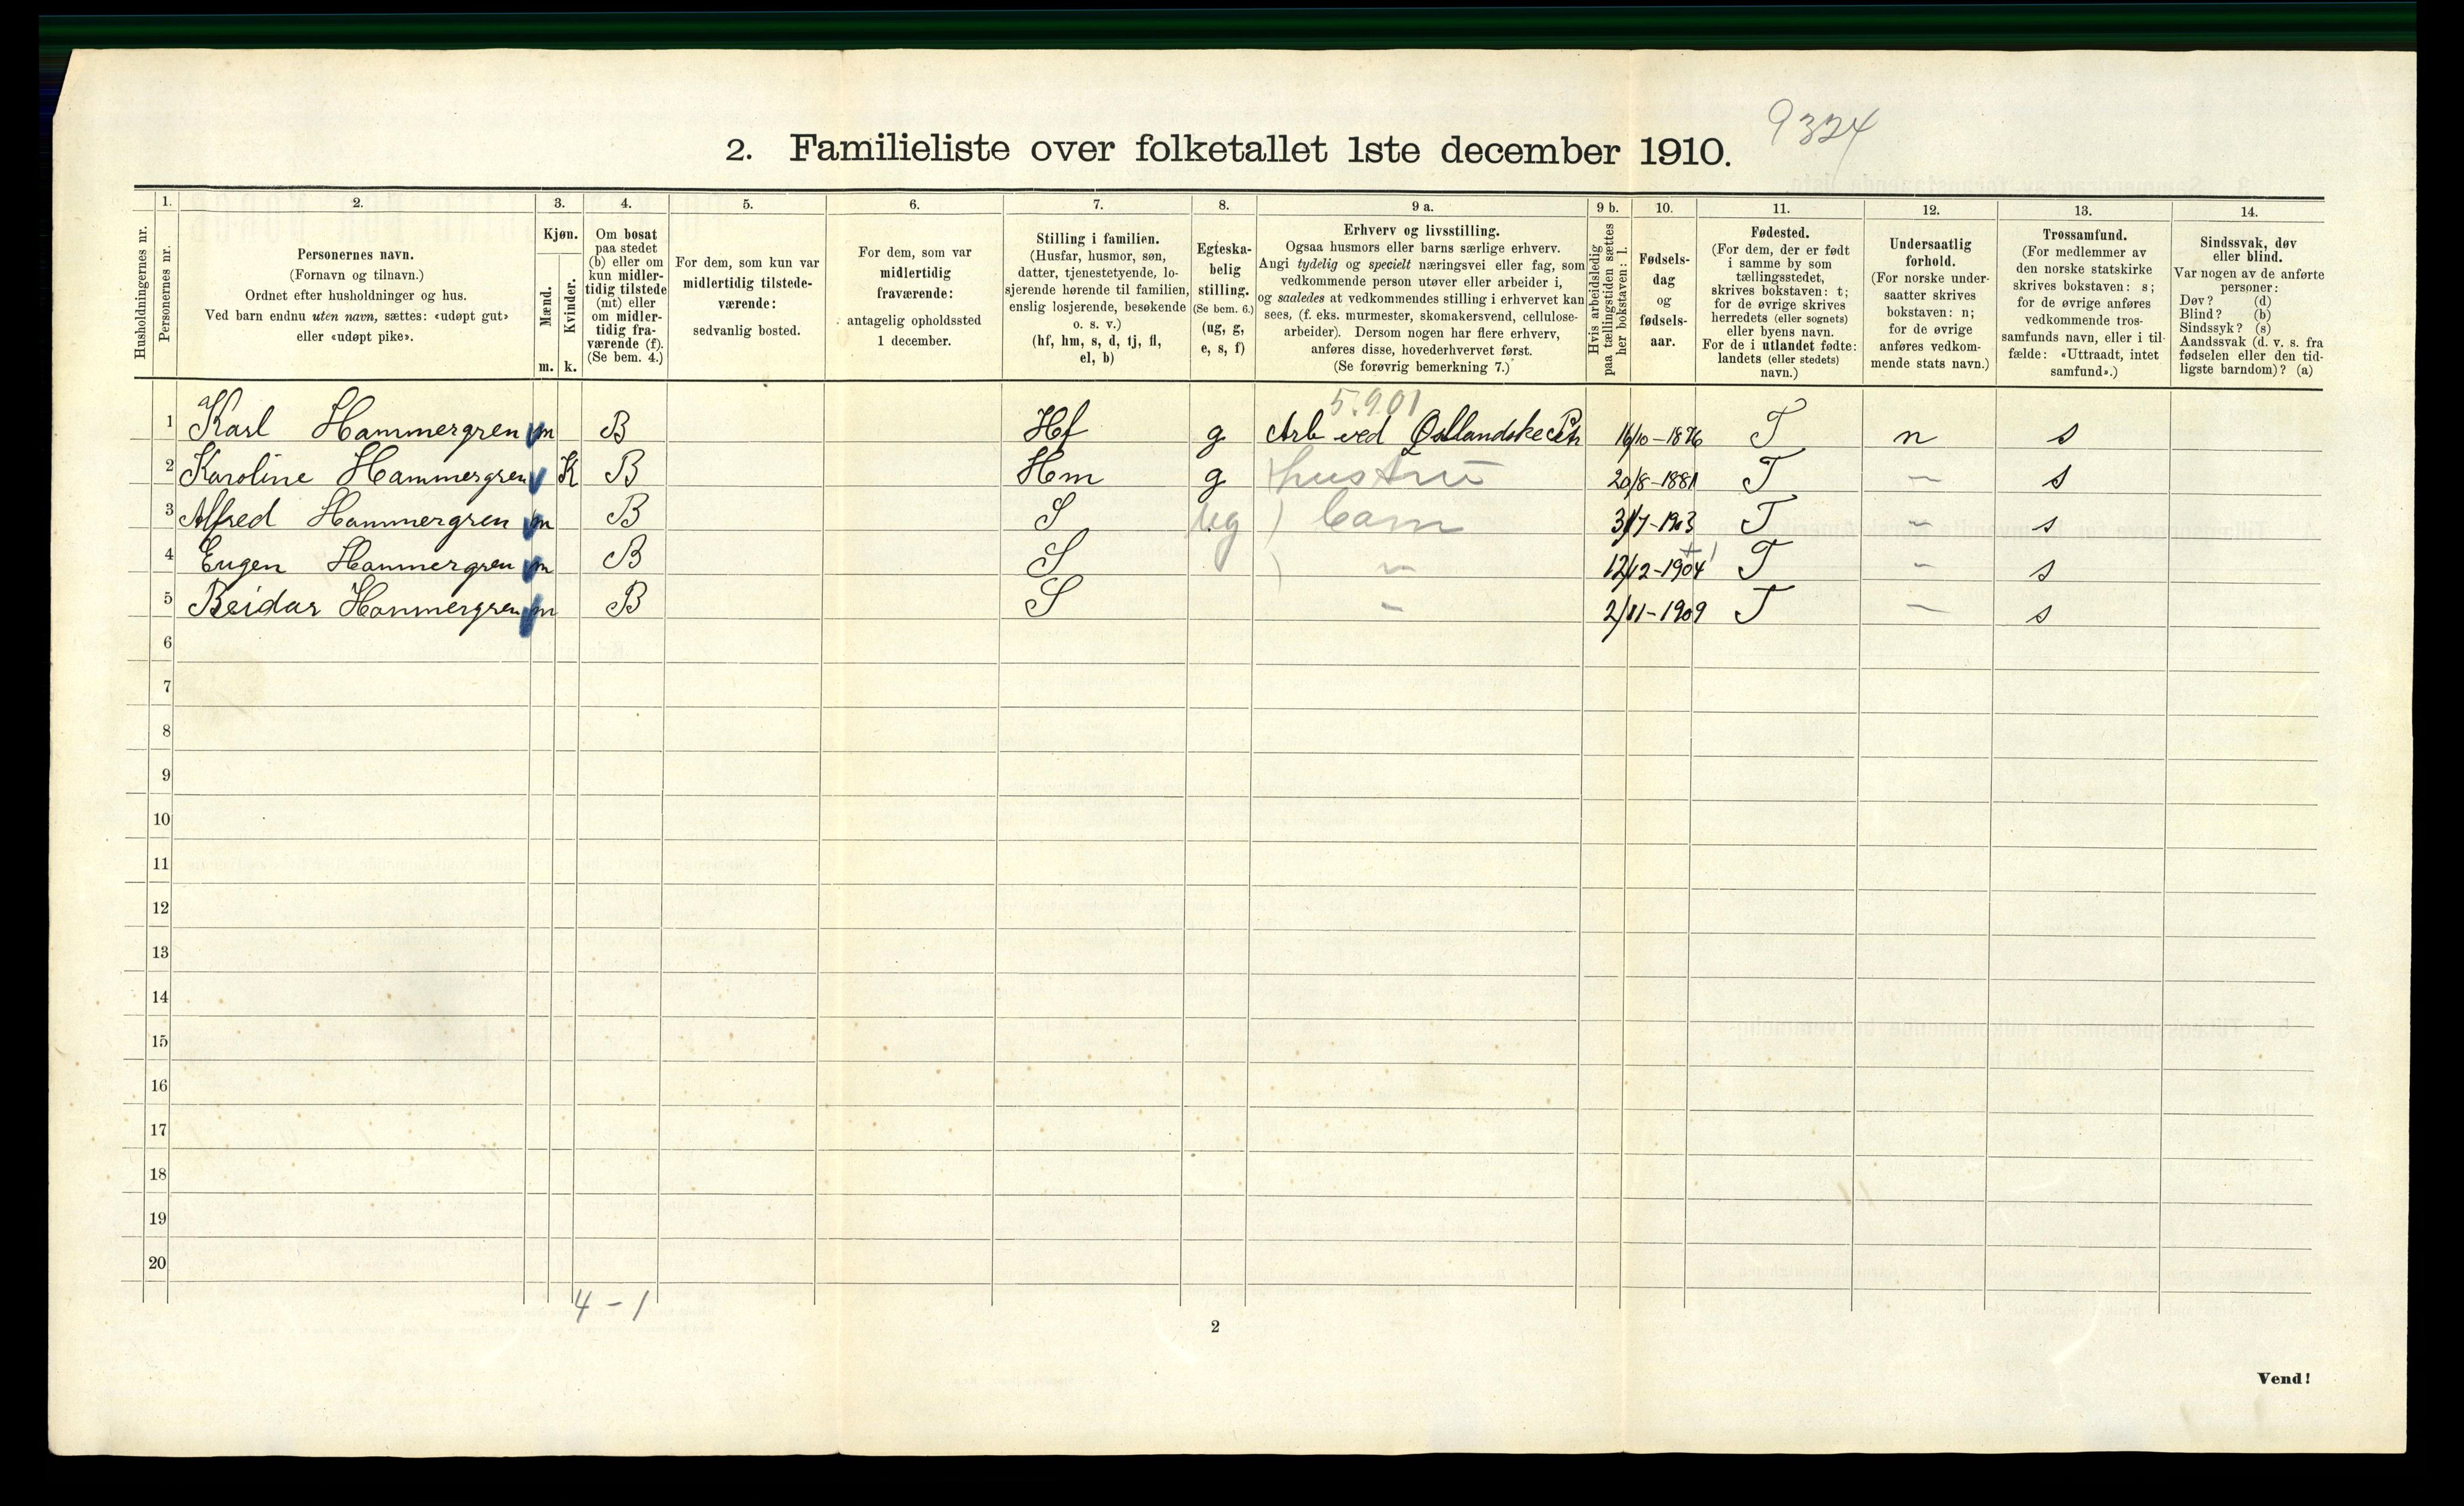 9324
2. Familieliste over folketallet 1ste december 1910.
Husholdningernes nr.
1.
Personernes nr.
2.
Personernes navn.
(Fornavn og tilnavn.)
Ordnet efter husholdninger og hus.
Ved barn endnu uten navn, sættes: «udøpt gut»
eller «udøpt pike».
3.
Kjøn.
Mænd.
Kvinder.
m. k.
4.
Om bosat
paa stedet
(b) eller om
kun midler-
tidig tilstede
(mt) eller
om midler-
tidig fra-
værende (f).
(Se bem. 4.)
5.
For dem, som kun var
midlertidig tilstede-
værende:
sedvanlig bosted.
6.
For dem, som var
midlertidig
fraværende:
antagelig opholdssted
1 december.
7.
Stilling i familien.
(Husfar, husmor, søn,
datter, tjenestetyende, lo-
sjerende hørende til familien,
enslig losjerende, besøkende
o. s. v.)
(hf, hm, s, d, tj, fl,
el, b)
8.
Egteska-
belig
stilling.
(Se bem. 6.)
(ug, g,
e, s, f)
9 a.
Erhverv og livsstilling.
Ogsaa husmors eller barns særlige erhverv.
Angi tydelig og specielt næringsvei eller fag, som
vedkommende person utøver eller arbeider i,
og saaledes at vedkommendes stilling i erhvervet kan
sees, (f. eks. murmester, skomakersvend, cellulose-
arbeider). Dersom nogen har flere erhverv,
anføres disse, hovederhvervet først.
(Se forøvrig bemerkning 7.)
9 b.
Hvis arbeidsledig
paa tællingstiden sættes
her bokstaven: l.
10.
Fødsels-
dag
og
fødsels-
aar.
11.
Fødested.
(For dem, der er født
i samme by som
tællingsstedet,
skrives bokstaven: t;
for de øvrige skrives
herredets (eller sognets)
eller byens navn.
For de i utlandet fødte:
landets (eller stedets)
navn.)
12.
Undersaatlig
forhold.
(For norske under-
saatter skrives
bokstaven: n;
for de øvrige
anføres vedkom-
mende stats navn.)
13.
Trossamfund.
(For medlemmer av
den norske statskirke
skrives bokstaven: s;
for de øvrige anføres
vedkommende tros-
samfunds navn, eller i til-
fælde: «Uttraadt, intet
samfund».)
14.
Sindssvak, døv
eller blind.
Var nogen av de anførte
personer:
Døv? (d)
Blind? (b)
Sindssyk? (s)
Aandssvak (d. v. s. fra
fødselen eller den tid-
ligste barndom)? (a)
5.9.01
1 Karl Hammergren m B Hf g Arb ved Østlandske 16/10-1876 T n s
2 Karoline Hammergren K B Hm g hustru 20/8-1881 T - s
3 Alfred Hammergren m B S ug barn 31/7-1903 T - s
4 Eugen Hammergren m B S - 12/12-1904 T - s
5 Reidar Hammergren m B S - 2/11-1909 T - s
6
7
8
9
10
11
12
13
14
15
16
17
18
19
20
4 - 1
2
Vend!